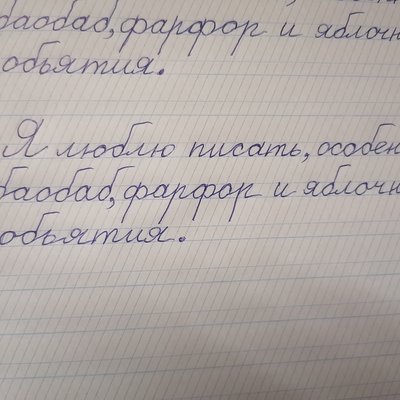 баобаб, фарфор и яблочн
объятия.
Я люблю писать, особен
баобаб, фарфор и яблочн
объятия.